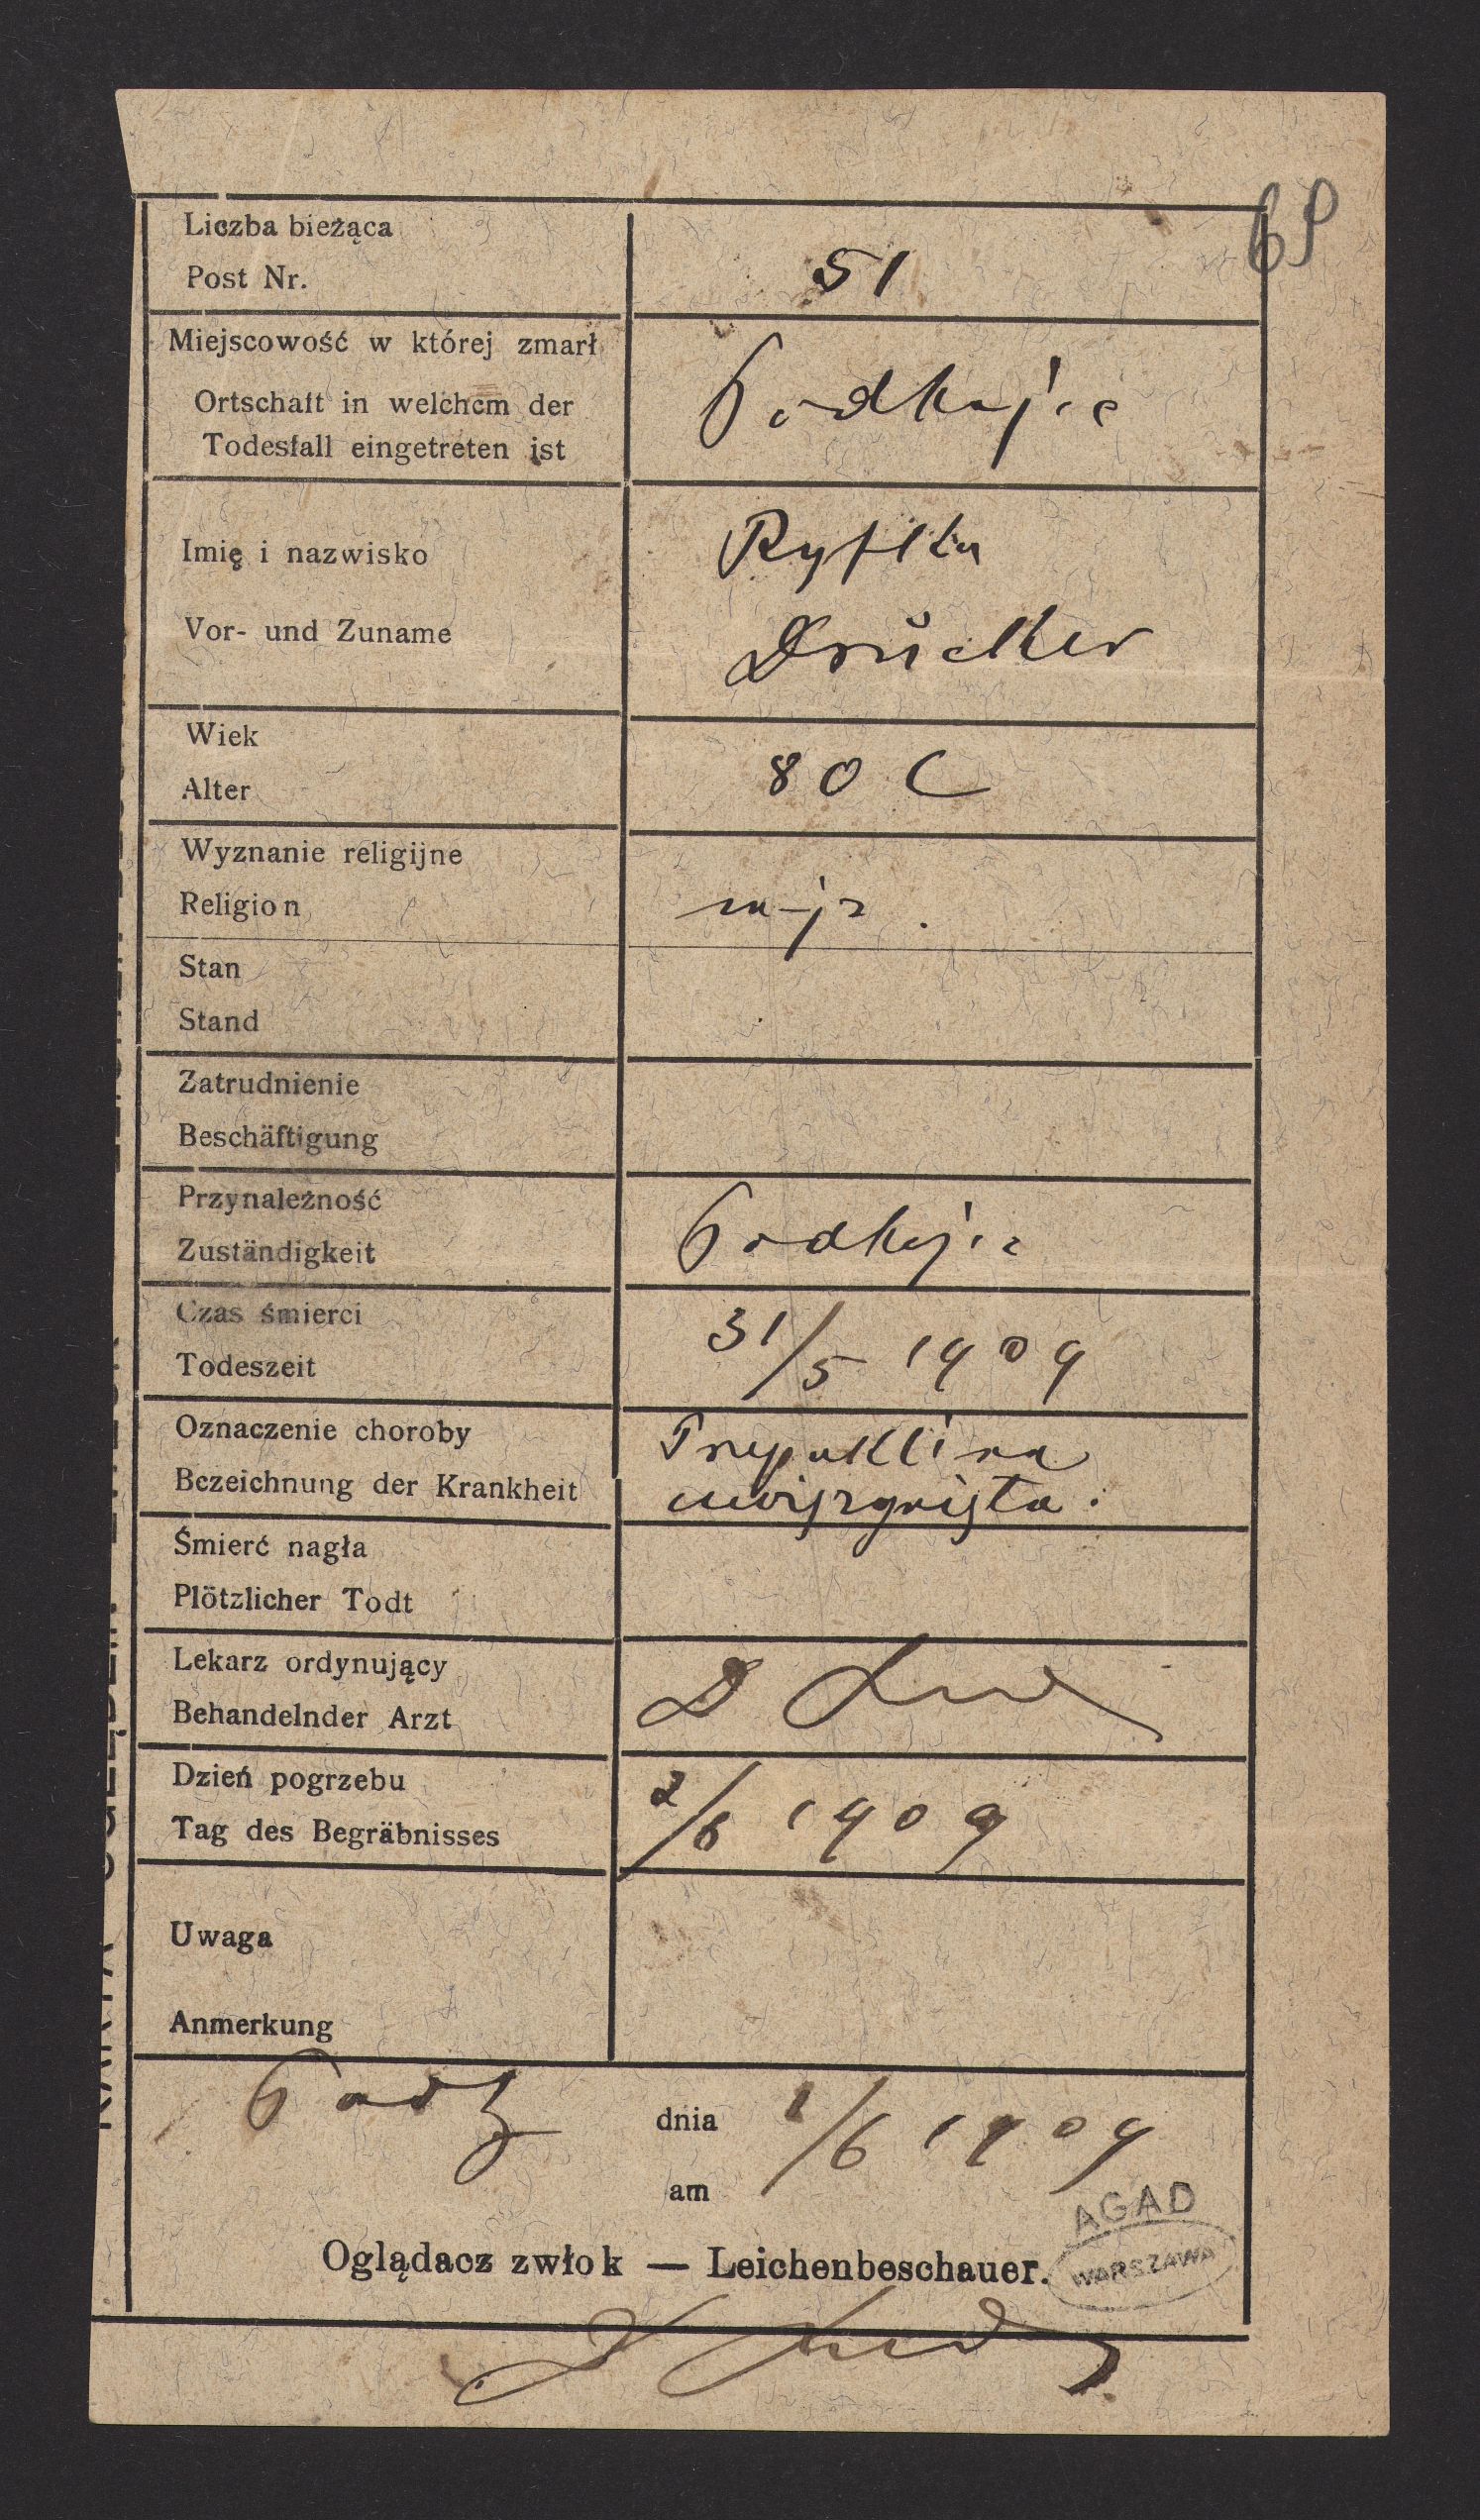 69
Liczba bieżąca
Post Nr.
51
Miejscowość w której zmarł
Ortschaft in welchem der
Todesfall eingetreten ist
Podhajce
Imię i nazwisko
Vor- und Zuname
Ryfka
Drucker
Wiek
Alter
80
Wyznanie religijne
Religion
mojż.
Stan
Stand
Zatrudnienie
Beschäftigung
Przynależność
Zuständigkeit
Podhajce
Czas śmierci
Todeszeit
31/5 1909
Oznaczenie choroby
Bezeichnung der Krankheit
Przepuklina
uwięzgnięta.
Śmierć nagła
Plötzlicher Todt
Lekarz ordynujący
Behandelnder Arzt
D
Dzień pogrzebu
Tag des Begräbnisses
2/6 1909
Uwaga
Anmerkung
dnia 1/6 1909
am
AGAD
WARSZAWA
Oglądacz zwłok — Leichenbeschauer.